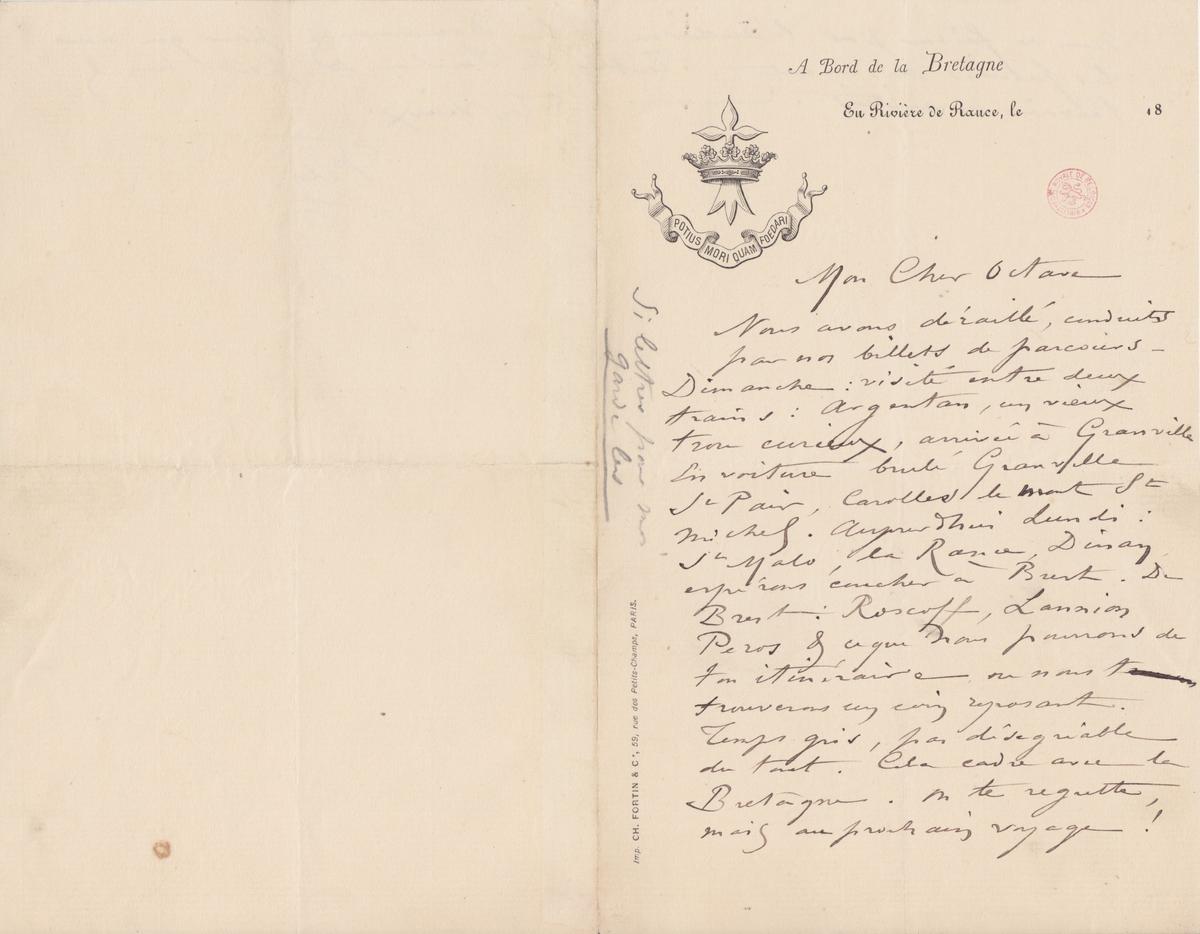 A Bord de la Bretagne
En Rivière de Rance, le 18
POTIUS MORI QUAM FOEDARI
Mon Cher Octave
Nous avons déraillé, conduits
par nos billets de parcours -
Dimanche : visité entre deux
trains : Argentan, un vieux
trou curieux, arrivée à Granville
En voiture brulé Granville
St Pair, Carolles le mont St
Michel. Aujourdhui Lundi :
St Malo, la Rance, Dinan,
espérons coucher à Brest. De
Brest : Roscoff, Lannion
Peros & ce que nous pourrons de
ton itinéraire ou nous
trouverons un coin reposant.
Temps gris, pas désagréable
du tout. Cela cadre avec la
Bretagne. on te regrette,
mais au prochain voyage !
Si lettres pour moi
garde les
Imp. CH. FORTIN & Cie, 59, rue des Petits-Champs, PARIS.